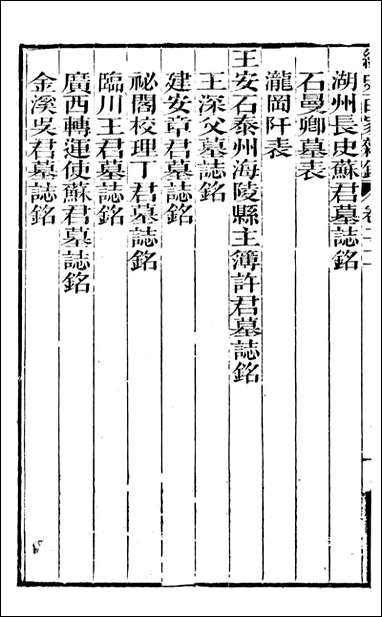 湖州長史蘇君墓誌銘
石曼卿墓表
瀧岡阡表
王安石泰州海陵縣主簿許君墓誌銘
王深父墓誌銘
建安章君墓誌銘
祕閣校理丁君墓誌銘
臨川王君墓誌銘
廣西轉運使蘇君墓誌銘
金溪吳君墓誌銘